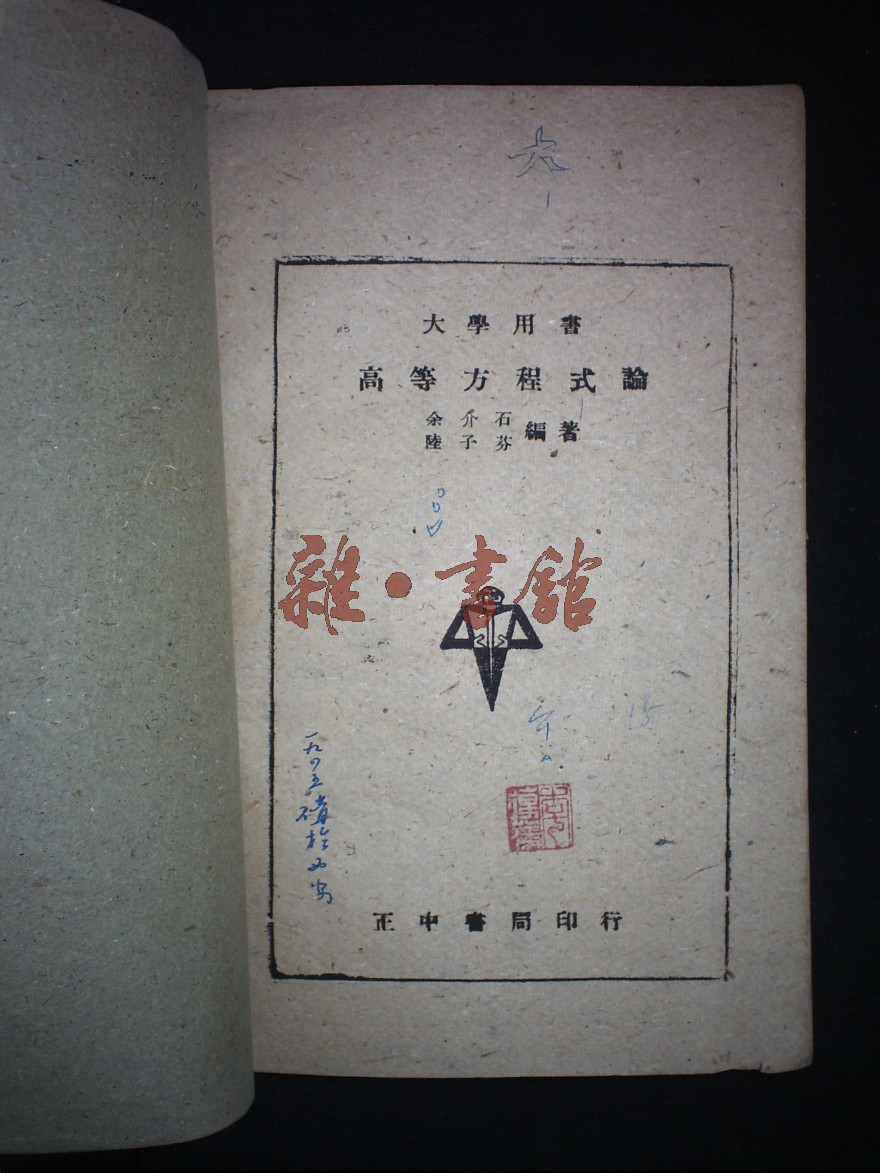 六
大學用書
高等方程式論
余介石
陸子芬
編著
雜·書館
一九四五購於西安
正中書局印行